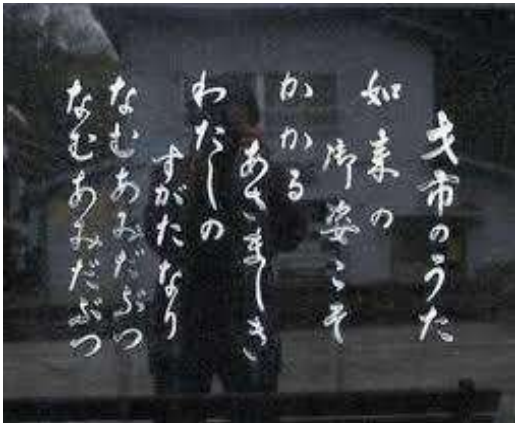 才市のうた
如来の
御姿こそ
かかる
あさましき
わたしの
すがたなり
なむあみだぶつ
なむあみだぶつ